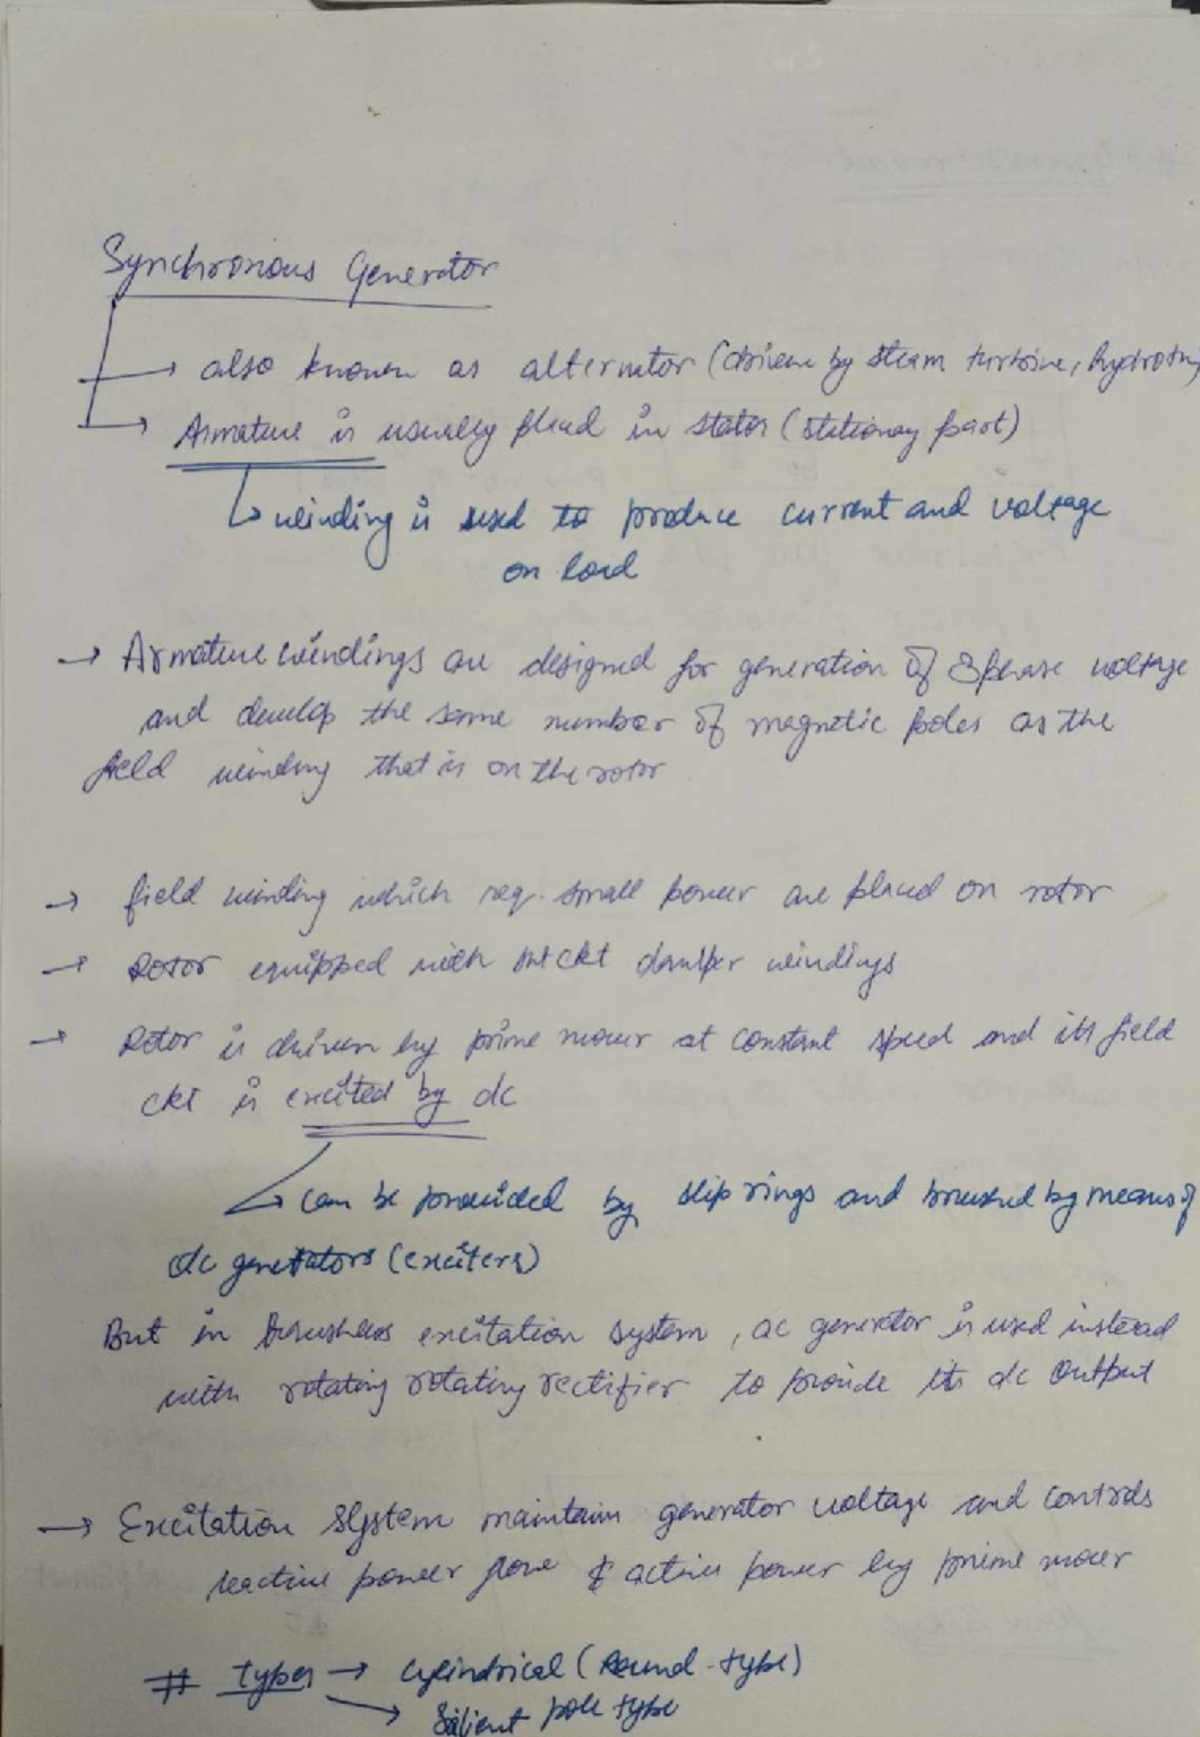 Synchronous Generator
→ also known as alternator (driven by steam turbine, hydrotu
→ Armature is usually placed in stator (stationary part)
↳ winding is used to produce current and voltage
on load
→ Armature windings are designed for generation of 3 phase voltage
and develop the same number of magnetic poles as the
field winding that is on the rotor
→ field winding which req. small power are placed on rotor
→ Rotor equipped with ckt damper windings
→ Rotor is driven by prime mover at constant speed and its field
ckt is excited by dc
↳ can be provided by slip rings and brushed by means of
dc generators (exciters)
But in brushless excitation system, ac generator is used instead
with rotating rotating rectifier to provide its dc output
→ Excitation system maintain generator voltage and controls
reactive power flow & active power by prime mover
# types → cylindrical (Round-type)
→ Salient pole type